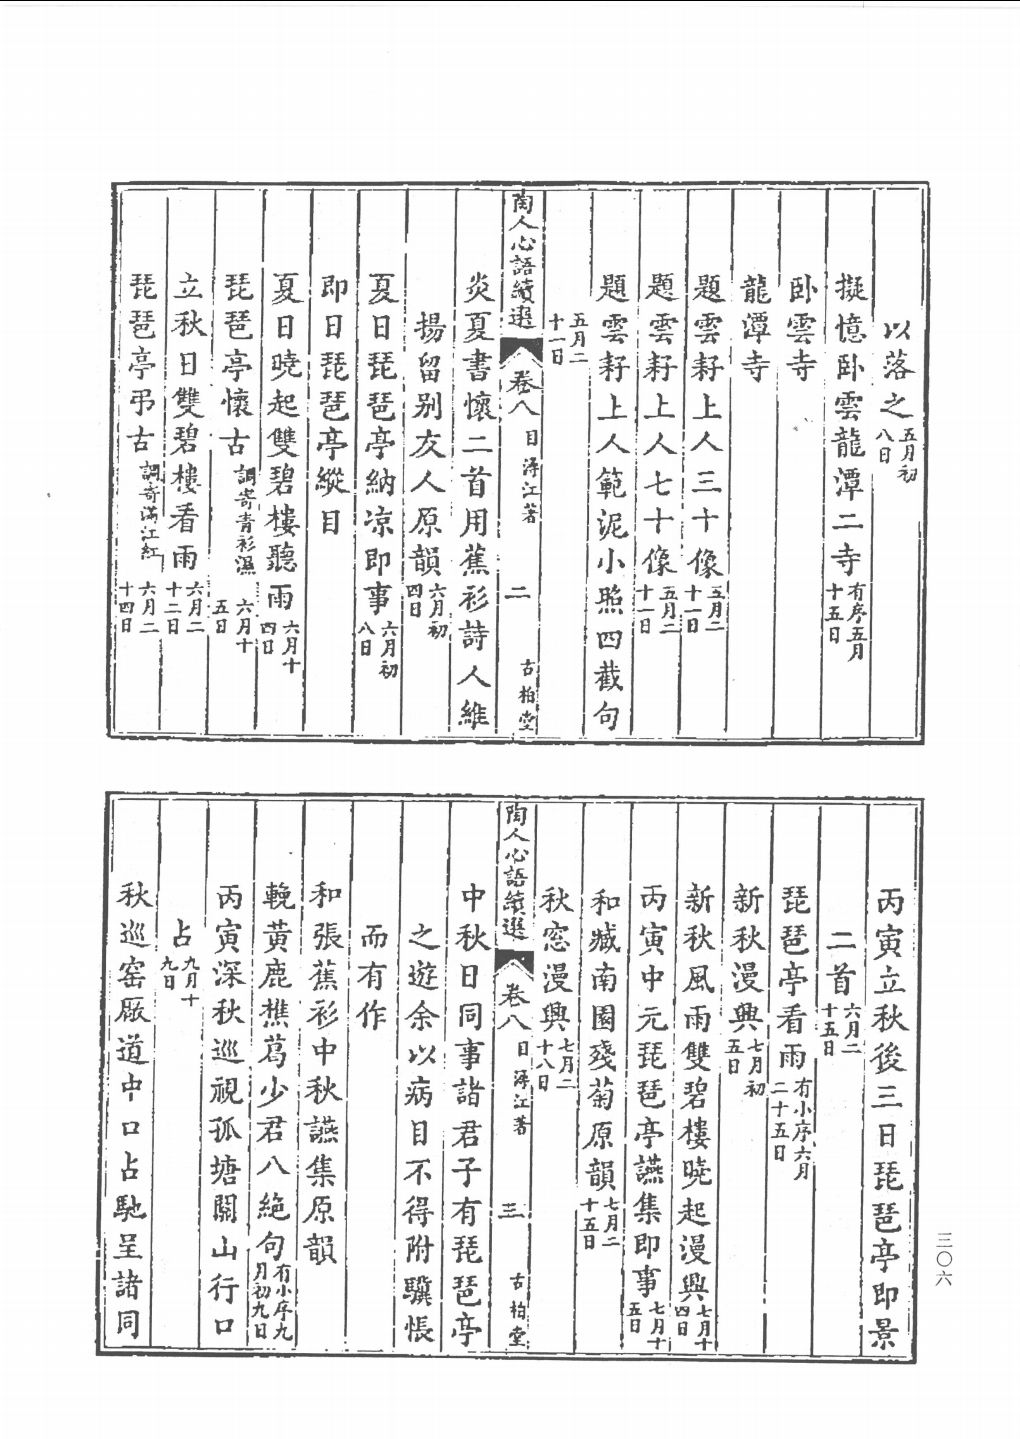 以落之五月初八日
擬憶卧雲龍潭二寺有序五月十五日
卧雲寺
龍潭寺
題雲耔上人三十像五月二十一日
題雲耔上人七十像五月二十一日
題雲耔上人範泥小照四截句
五月二十一日
陶人心語續選 卷八 目 潯江著 二 古柏堂
炎夏書懷二首用蕉衫詩人維
揚留别友人原韻六月初四日
夏日琵琶亭納凉即事六月初八日
即日琵琶亭縱目
夏日曉起雙碧樓聽雨六月十四日
琵琶亭懷古調寄青衫濕 六月十五日
立秋日雙碧樓看雨六月二十二日
琵琶亭弔古調寄滿江紅 六月二十四日
丙寅立秋後三日琵琶亭即景
二首六月二十五日
琵琶亭看雨有小序六月二十五日
新秋漫興七月初五日
新秋風雨雙碧樓曉起漫興七月十四日
丙寅中元琵琶亭讌集即事七月十五日
和臧南園殘菊原韻七月二十五日
秋窓漫興七月二十八日
陶人心語續選 卷八 目 潯江著 三 古柏堂
中秋日同事諸君子有琵琶亭
之遊余以病目不得附驥悵
而有作
和張蕉衫中秋讌集原韻
輓黄鹿樵葛少君八絶句有小序九月初九日
丙寅深秋巡視孤塘關山行口
占九月十九日
秋巡窑厰道中口占馳呈諸同
三〇六